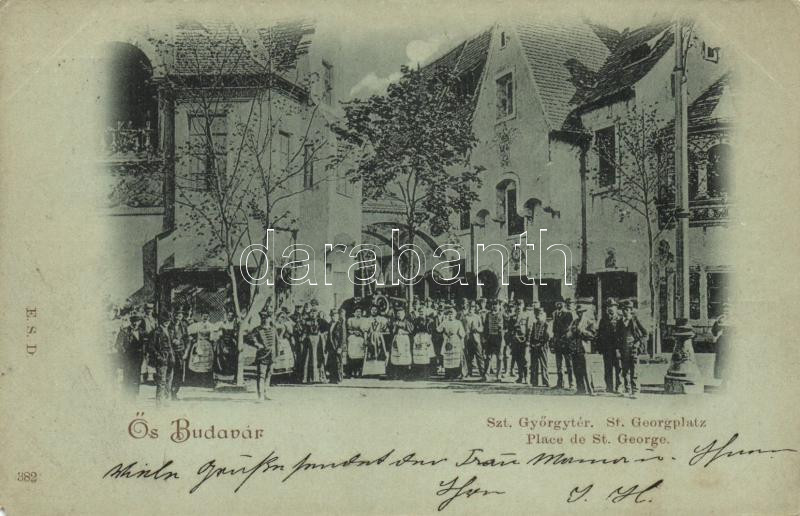 darabanth
E. S. D
Ős Budavár
Szt. Györgytér. St. Georgplatz
Place de St. George.
382
Viele Grüße sendet der Frau Mama u.
J. H.